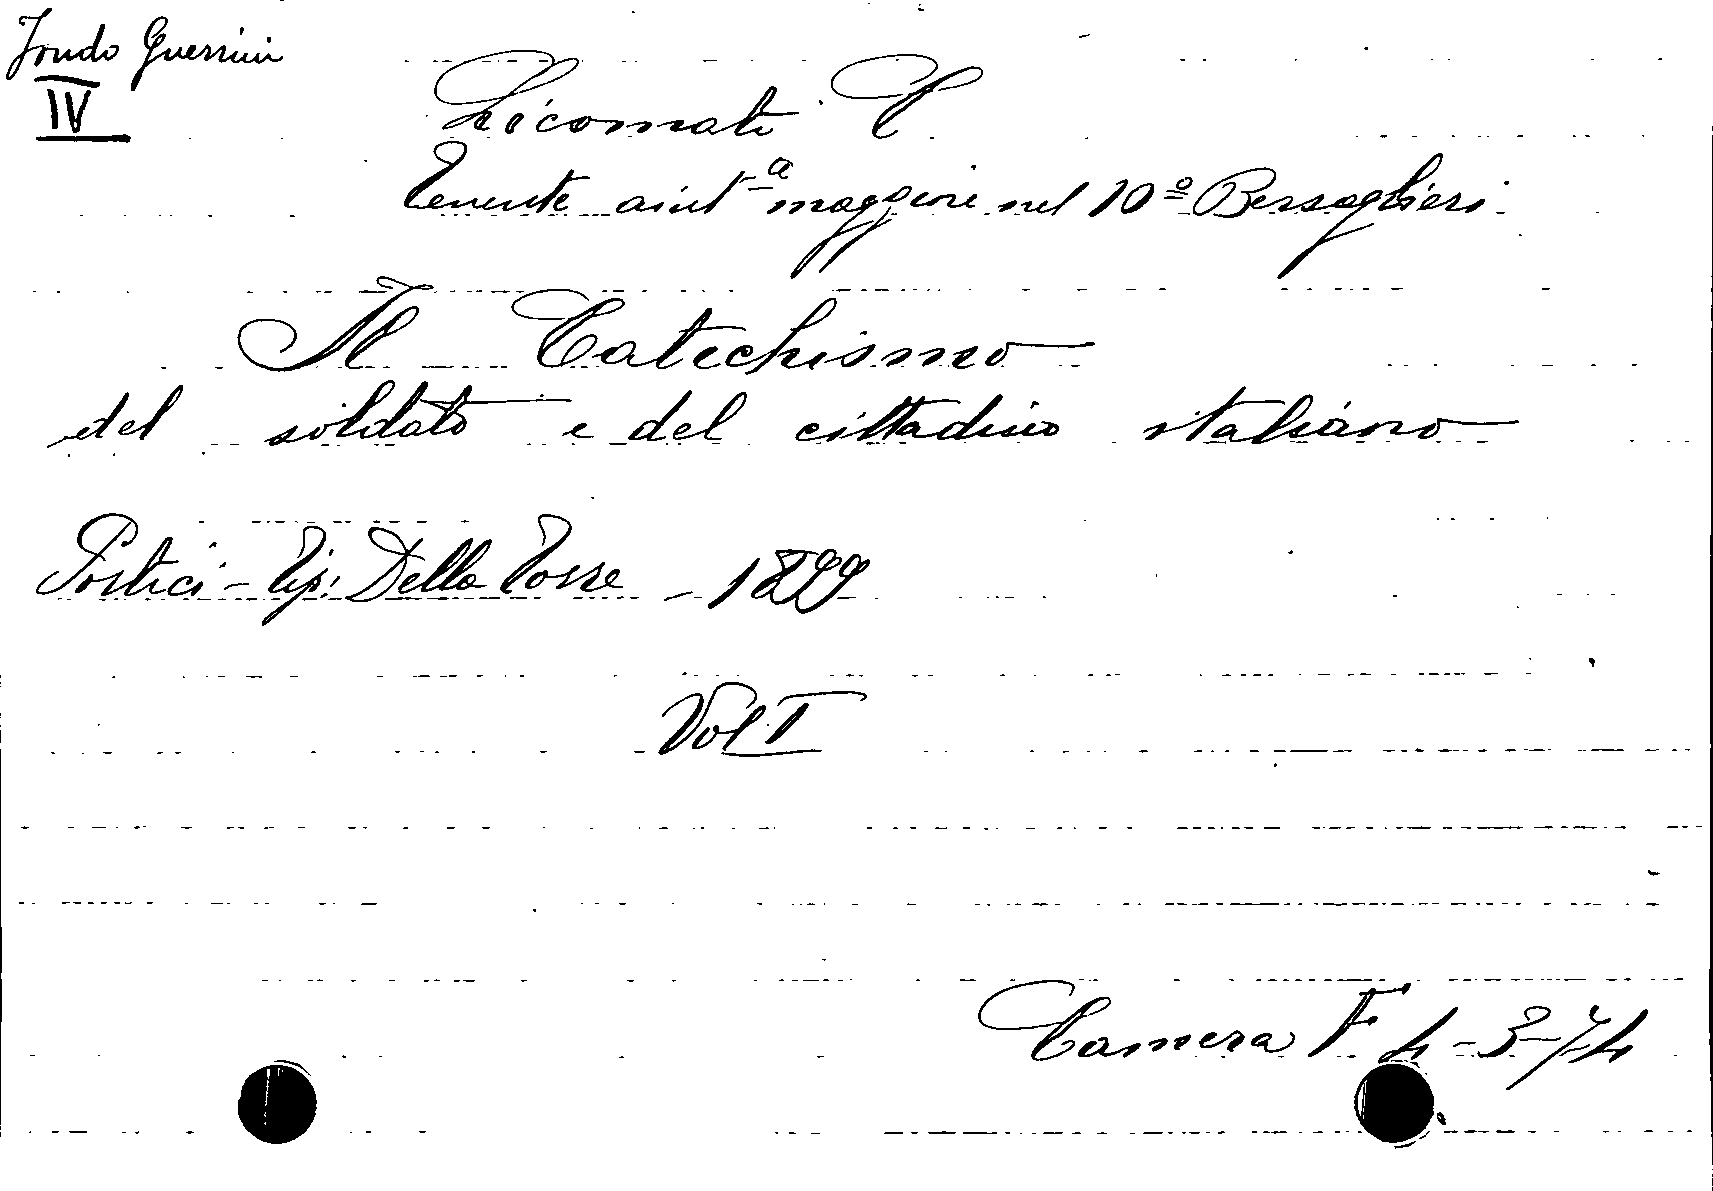 Fondo Guerrini
IV
Licomati C
Tenente aiut.ª maggiore nel 10º Bersaglieri
Il Catechismo
del soldato e del cittadino italiano
Portici - Tip: Della Torre - 1899
Vol I
Camera F 4-3-74